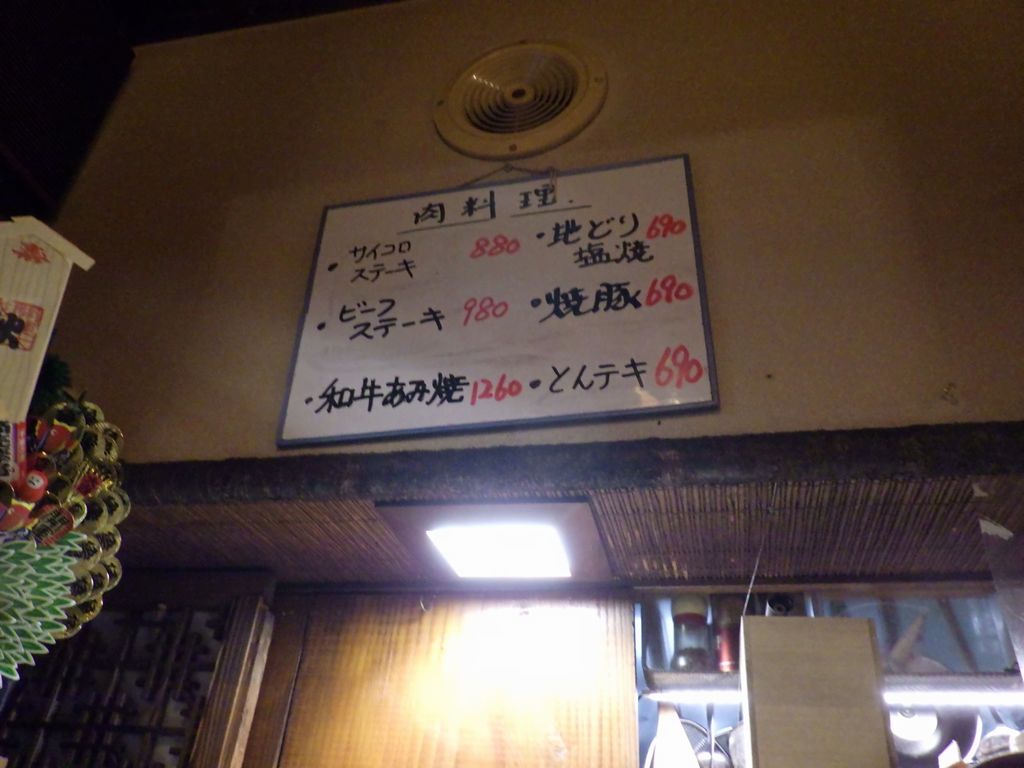 肉料理.
・サイコロ
ステーキ 880
・ビーフ
ステーキ 980
・和牛あみ焼 1260
・地どり 690
塩焼
・焼豚 690
・とんテキ 690